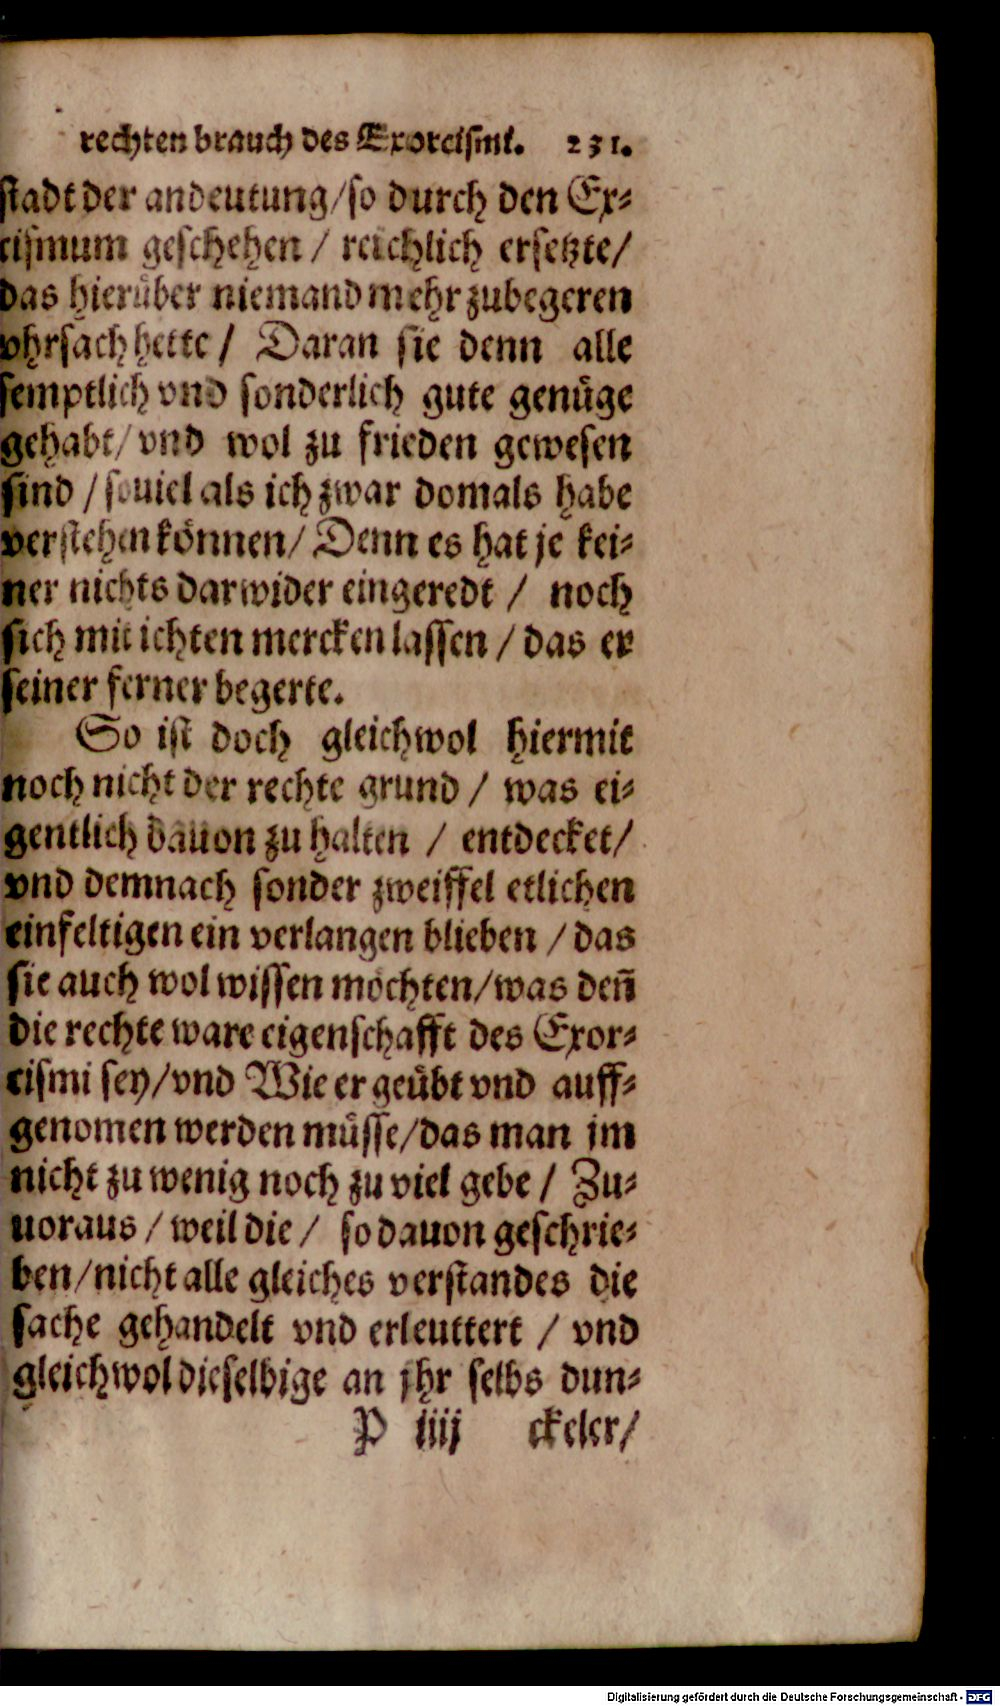 rechten brauch des Exorcismi. 231.
stadt der andeutung/so durch den Ex⸗
cismum geschehen / reichlich ersetzte/
das hieruͤber niemand mehr zubegeren
vhrsach hette / Daran sie denn alle
semptlich vnd sonderlich gute genuͤge
gehabt/ vnd wol zu frieden gewesen
sind / souiel als ich zwar domals habe
verstehen koͤnnen/ Denn es hat je kei⸗
ner nichts darwider eingeredt / noch
sich mit ichten mercken lassen / das er
seiner ferner begerte.
So ist doch gleichwol hiermit
noch nicht der rechte grund / was ei⸗
gentlich dauon zu halten / entdecket/
vnd demnach sonder zweiffel etlichen
einfeltigen ein verlangen blieben / das
sie auch wol wissen moͤchten/was deñ
die rechte ware eigenschafft des Exor⸗
cismi sey/vnd Wie er geuͤbt vnd auff⸗
genomen werden muͤsse/das man jm
nicht zu wenig noch zu viel gebe / Zu⸗
uoraus / weil die / so dauon geschrie⸗
ben/nicht alle gleiches verstandes die
sache gehandelt vnd erleuttert / vnd
gleichwol dieselbige an jhr selbs dun⸗
P iiij ckeler/
Digitalisierung gefördert durch die Deutsche Forschungsgemeinschaft - DFG